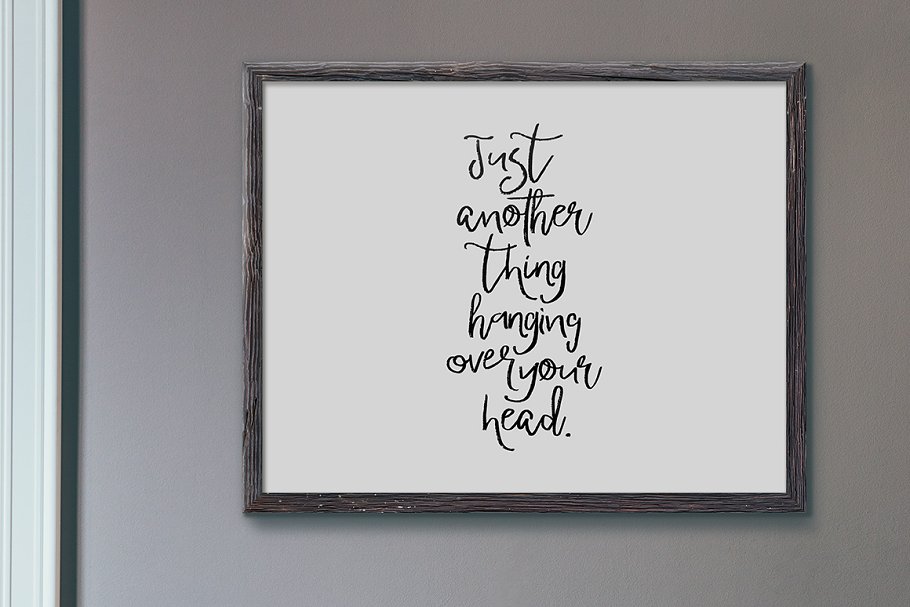 Just
another
thing
hanging
over your
head.